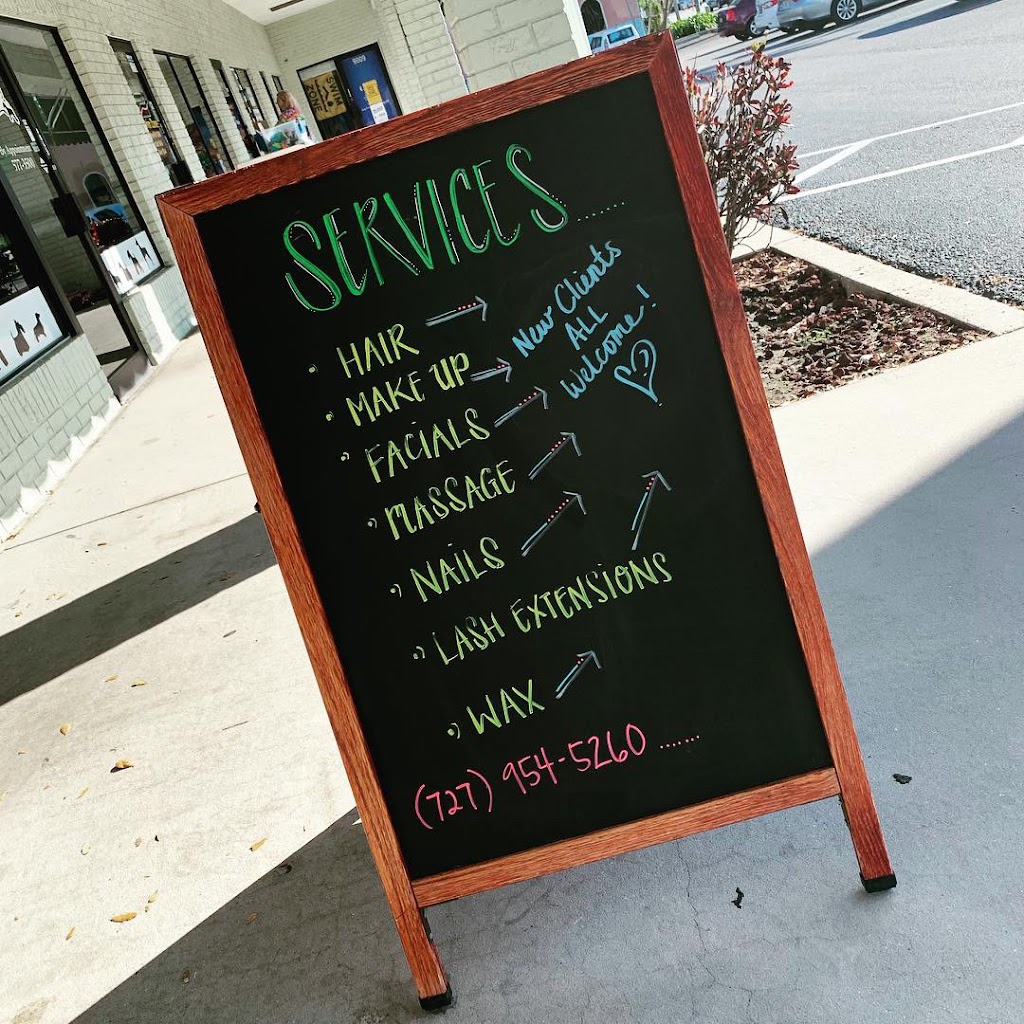 SERVICES.......
• HAIR
• MAKE UP
• FACIALS
• MASSAGE
• NAILS
• LASH EXTENSIONS
• WAX
New Clients
ALL
Welcome!
(727) 954-5260 .......
SWIM
ZONE